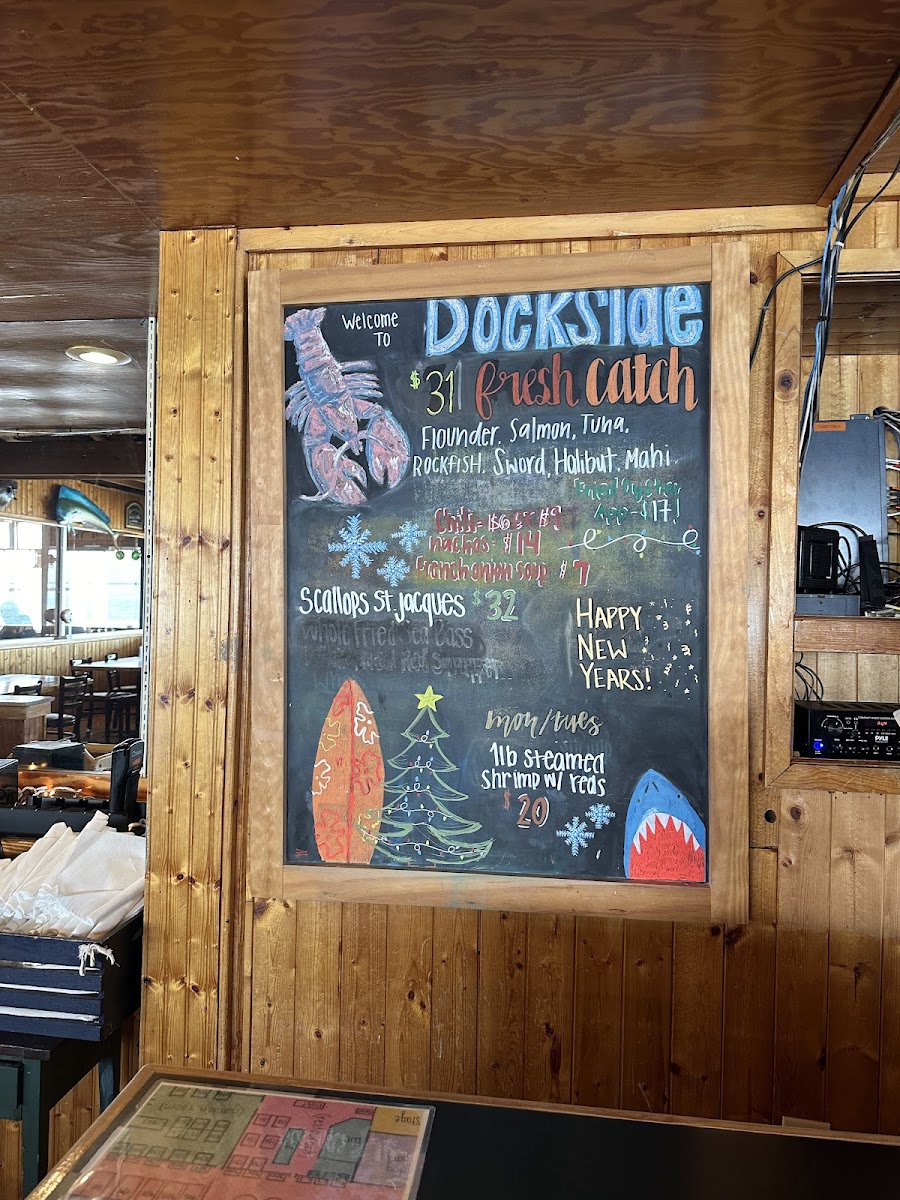 Welcome
TO
Dockside
$31 fresh catch
Flounder. Salmon, Tuna.
ROCKFISH. Sword, Halibut. Mahi.
Fried Oyster
App - $17!
Chili - $6.95 $9
nachos - $14
French onion soup $7
Scallops St. Jacques $32
Whole Fried Sea Bass
Red Snapper
HAPPY
NEW
YEARS!
mon/tues
1lb steamed
shrimp w/ reds
$20
PYLE
Stage